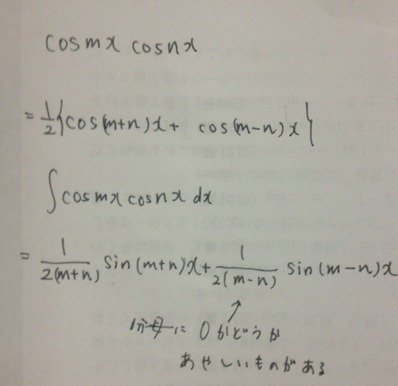 cosmx cosnx
= 1/2{cos(m+n)x + cos(m-n)x}
∫cosmx cosnx dx
= 1/2(m+n) sin(m+n)x + 1/2(m-n) sin(m-n)x
分母に0かどうか
あやしいものがある